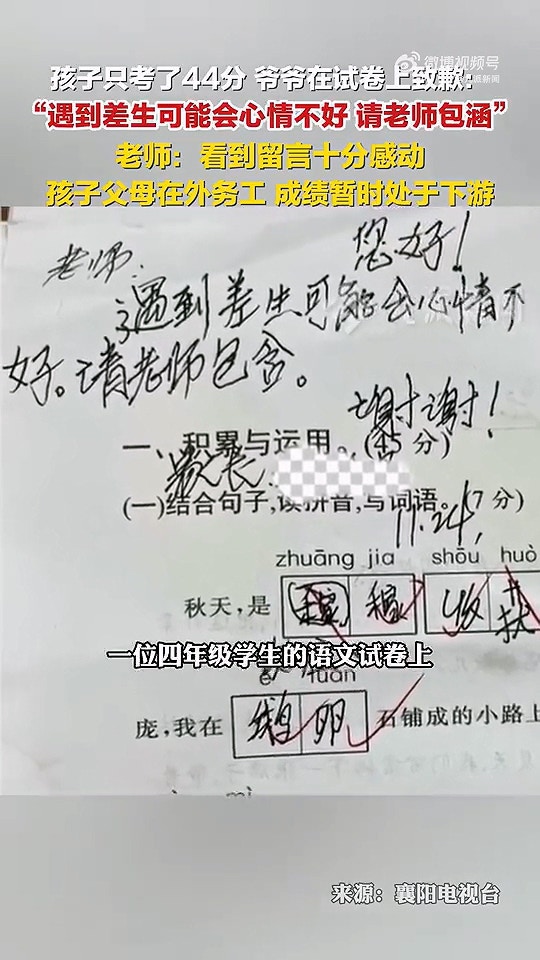 微博视频号
孩子只考了44分 爷爷在试卷上致歉：
“遇到差生可能会心情不好 请老师包涵”
老师：看到留言十分感动
孩子父母在外务工 成绩暂时处于下游
老师：
您好！
遇到差生可能会心情不
好。请老师包含。
谢谢！
一、积累与运用。(55分)
家长
(一)结合句子,读拼音,写词语。(7分)
11.24
zhuāng jia shōu huò
秋天,是 稼 收获
一位四年级学生的语文试卷上
luǎn
庞,我在 鹅卵 石铺成的小路上
mi
来源：襄阳电视台